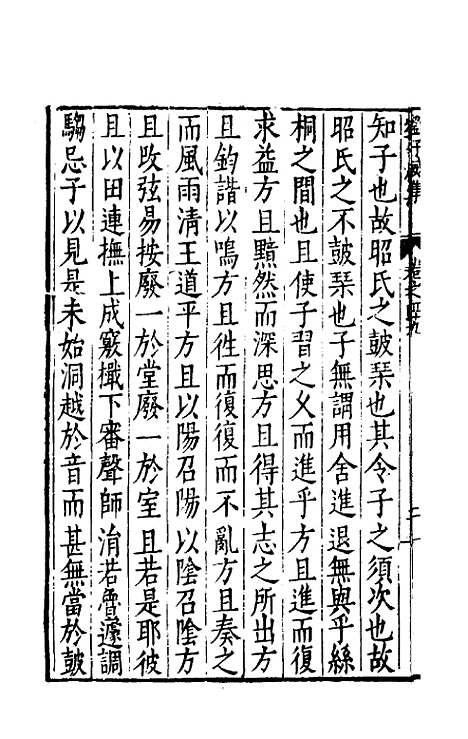 知子也故昭氏之鼓琴也其令子之須次也故
昭氏之不鼓琴也子無謂用舍進退無與乎絲
桐之間也且使子習之久而進乎方且進而復
求益方且黯然而深思方且得其志之所出方
且鈞諧以鳴方且徃而復復而不亂方且奏之
而風雨清王道平方且以陽召陽以陰召陰方
且改弦易按廢一於堂廢一於室且若是耶彼
且以田連撫上成竅檝下審聲師㳙若魯遽調
騶忌子以見是未始洞越於音而甚無當於鼓
卷之四十九